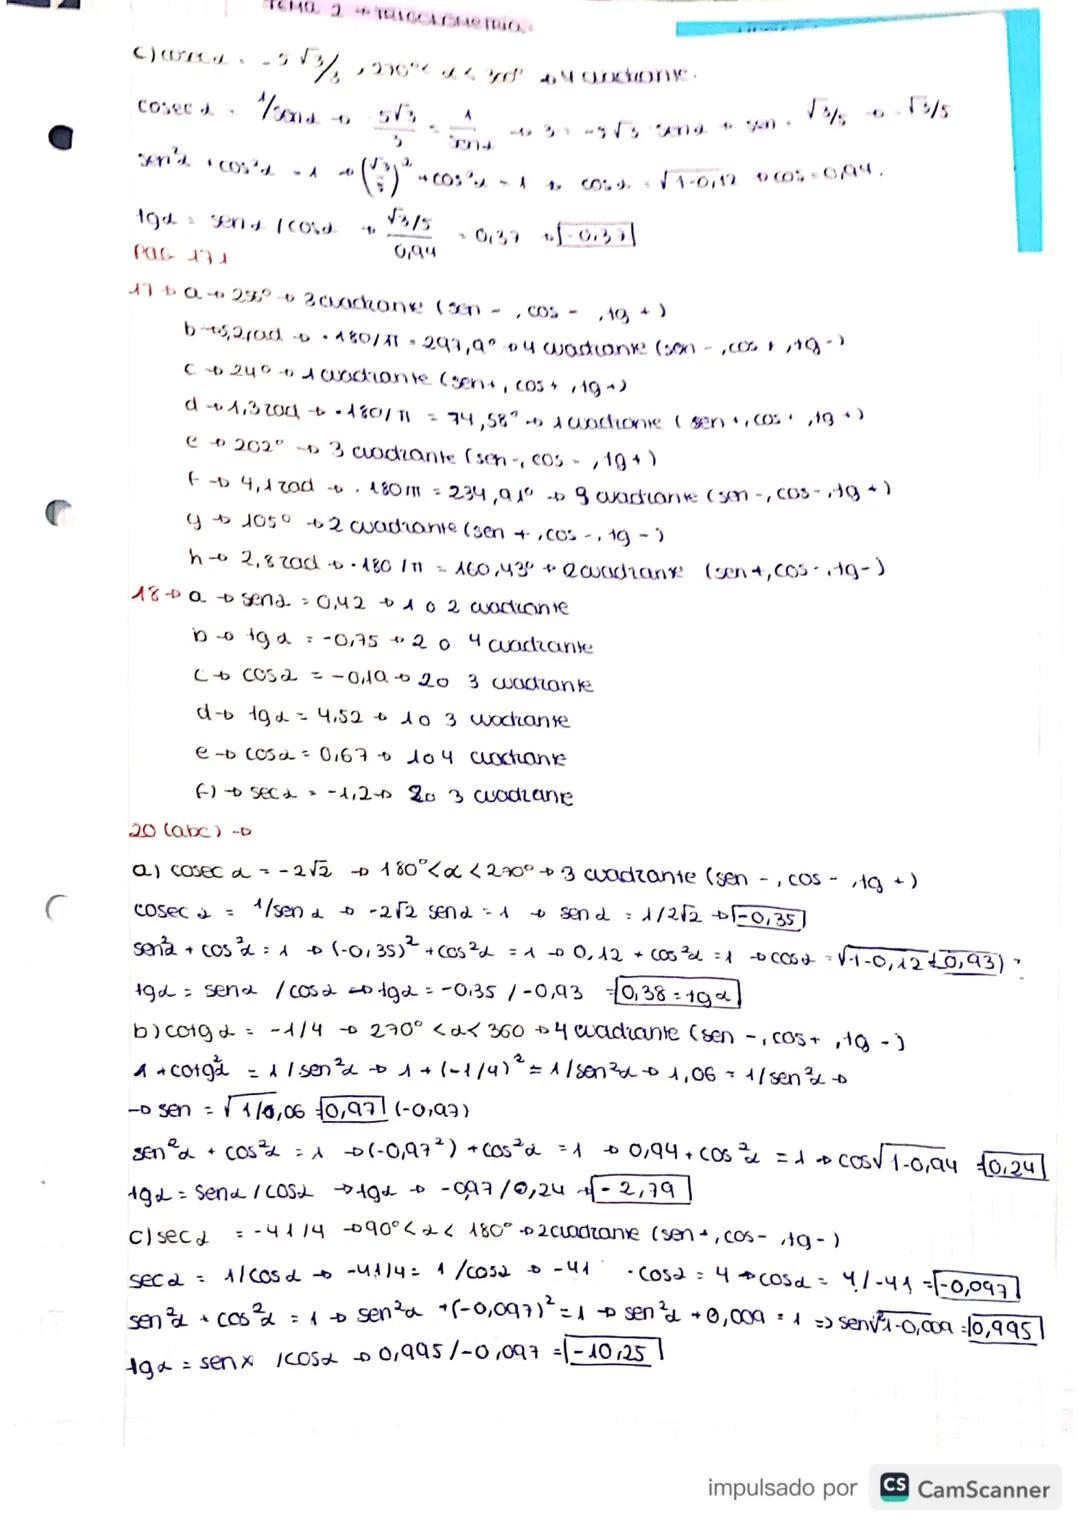 TEMA 2 → TRIGONOMETRIA
c) cosec α = -5√3/3, 270° < α < 360° → 4 cuadrante.
cosec α = 1/sen α → 5√3/3 = 1/sen α → 3 = -5√3 sen α → sen = √3/5 → -√3/5
sen²α + cos²α = 1 → (√3/5)² + cos²α = 1 → cos α = √1-0,12 → cos = 0,94.
tgα = sen α / cos α → √3/5 / 0,94 = 0,37 → -0,37
PAG 171
17 → a → 255° → 3 cuadrante (sen -, cos -, tg +)
b → 5,2 rad → · 180/π = 297,9° → 4 cuadrante (sen -, cos +, tg -)
c → 24° → 1 cuadrante (sen +, cos +, tg +)
d → 1,3 rad → · 180/π = 74,58° → 1 cuadrante (sen +, cos +, tg +)
e → 202° → 3 cuadrante (sen -, cos -, tg +)
f → 4,1 rad → · 180/π = 234,91° → 3 cuadrante (sen -, cos -, tg +)
g → 105° → 2 cuadrante (sen +, cos -, tg -)
h → 2,8 rad → · 180/π = 160,43° → 2 cuadrante (sen +, cos -, tg -)
18 → a → sen α = 0,42 → 1 o 2 cuadrante
b → tg α = -0,75 → 2 o 4 cuadrante
c → cos α = -0,19 → 2 o 3 cuadrante
d → tg α = 4,52 → 1 o 3 cuadrante
e → cos α = 0,67 → 1 o 4 cuadrante
f) → sec α = -1,2 → 2 o 3 cuadrante
20 (abc) →
a) cosec α = -2√2 → 180° < α < 270° → 3 cuadrante (sen -, cos -, tg +)
cosec α = 1/sen α → -2√2 sen α = 1 → sen α = 1/2√2 → -0,35
sen²α + cos²α = 1 → (-0,35)² + cos²α = 1 → 0,12 + cos²α = 1 → cos α = √1-0,12 (-0,93)
tgα = sen α / cos α → tgα = -0,35 / -0,93 = 0,38 = tg α
b) cotg α = -1/4 → 270° < α < 360 → 4 cuadrante (sen -, cos +, tg -)
1 + cotg²α = 1 / sen²α → 1 + (-1/4)² = 1 / sen²α → 1,06 = 1/sen²α →
→ sen = √1/1,06 = 0,97 (-0,97)
sen²α + cos²α = 1 → (-0,97²) + cos²α = 1 → 0,94 + cos²α = 1 → cos √1-0,94 = 0,24
tgα = sen α / cos α → tgα → -0,97 / 0,24 → -2,79
c) sec α = -41/4 → 90° < α < 180° → 2 cuadrante (sen +, cos -, tg -)
sec α = 1/cos α → -41/4 = 1/cos α → -41 · cos α = 4 → cos α = 4/-41 = -0,097
sen²α + cos²α = 1 → sen²α + (-0,097)² = 1 → sen²α + 0,009 = 1 => sen √1-0,009 = 0,995
tgα = sen x / cos α → 0,995 / -0,097 = -10,25
impulsado por CS CamScanner